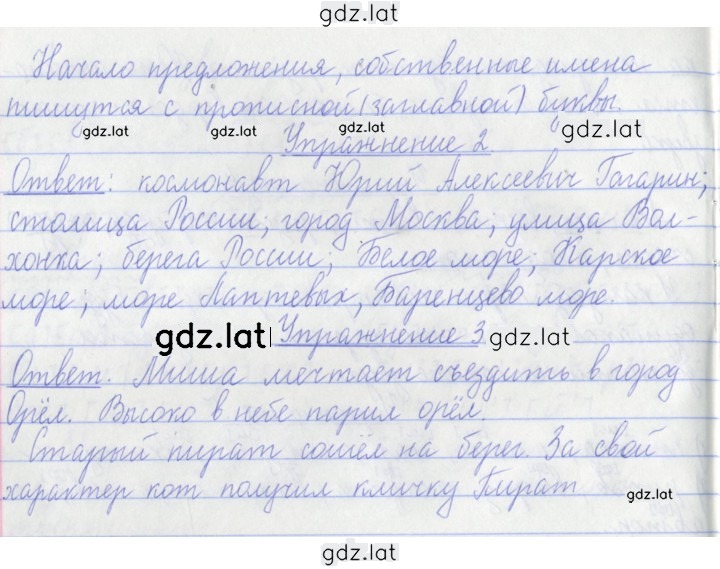 gdz.lat
Начало предложения, собственные имена
пишутся с прописной (заглавной) буквы.
gdz.lat gdz.lat gdz.lat gdz.lat
Упражнение 2.
Ответ: космонавт Юрий Алексеевич Гагарин;
столица России, город Москва; улица Вол-
хонка; берега России; Белое море; Карское
море; море Лаптевых, Баренцево море.
gdz.lat Упражнение 3 gdz.lat
Ответ. Миша мечтает съездить в город
Орёл. Высоко в небе парил орёл.
Старый пират сошёл на берег. За свой
характер кот получил кличку Пират
gdz.lat
gdz.lat